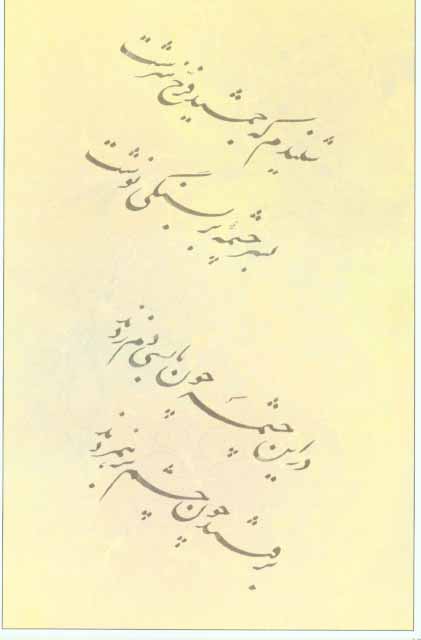 شنیدم که جمشید فرخ سرشت
بسرچشمه‌ٔ بر بسنگی نوشت
در این چشمه چون ما بسی دم زدند
برفتند چون چشم بر هم زدند